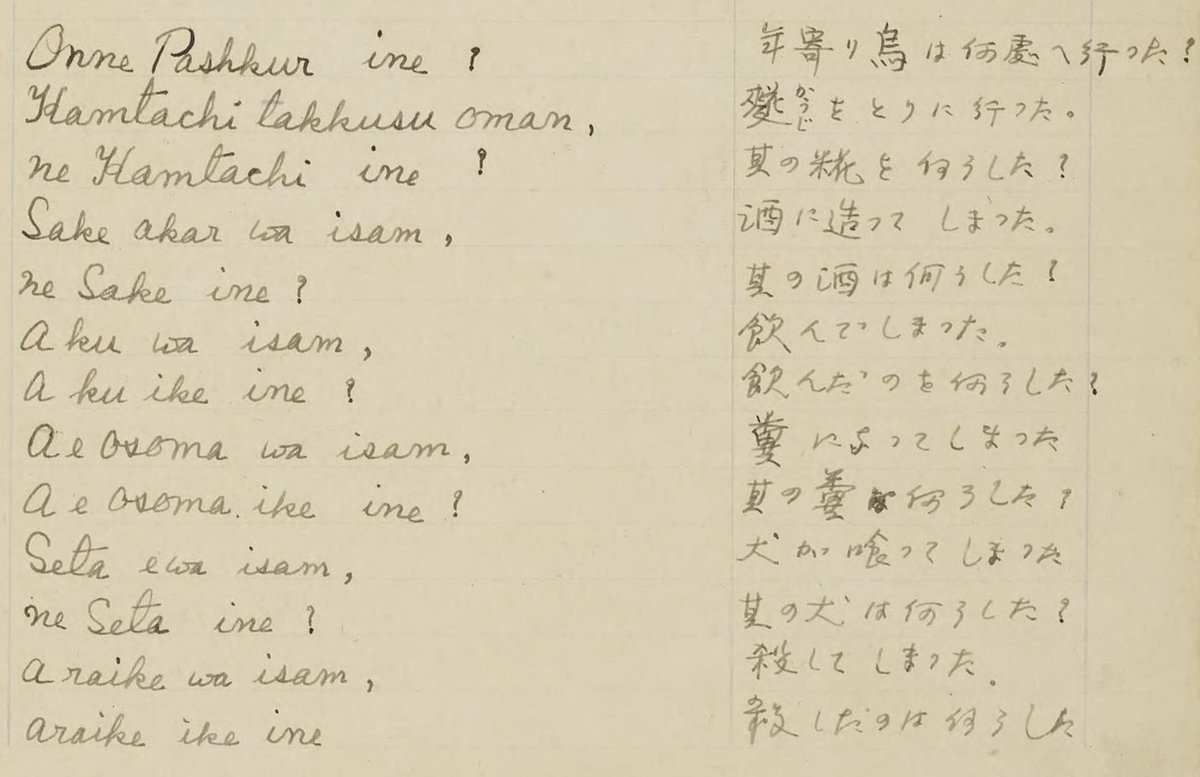 Onne Pashkur ine ? 年寄り烏は何處へ行つた?
Kamtachi takkusu oman, 糀をとりに行つた。
ne Kamtachi ine ? 其の糀を何うした?
Sake akar wa isam, 酒に造つてしまつた。
ne Sake ine ? 其の酒は何うした?
A ku wa isam, 飲んでしまつた。
A ku ike ine ? 飲んだのを何うした?
A e osoma wa isam, 糞によつてしまつた
A e osoma ike ine ? 其の糞は何うした?
Seta e wa isam, 犬が喰つてしまつた
ne Seta ine ? 其の犬は何うした?
A raike wa isam, 殺してしまつた.
araike ike ine 殺したのは何うした